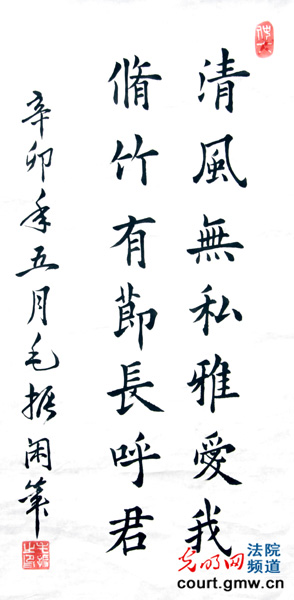 清風無私雅愛我
脩竹有節長呼君
辛卯年五月毛振闲筆
光明网
法院
频道
court.gmw.cn